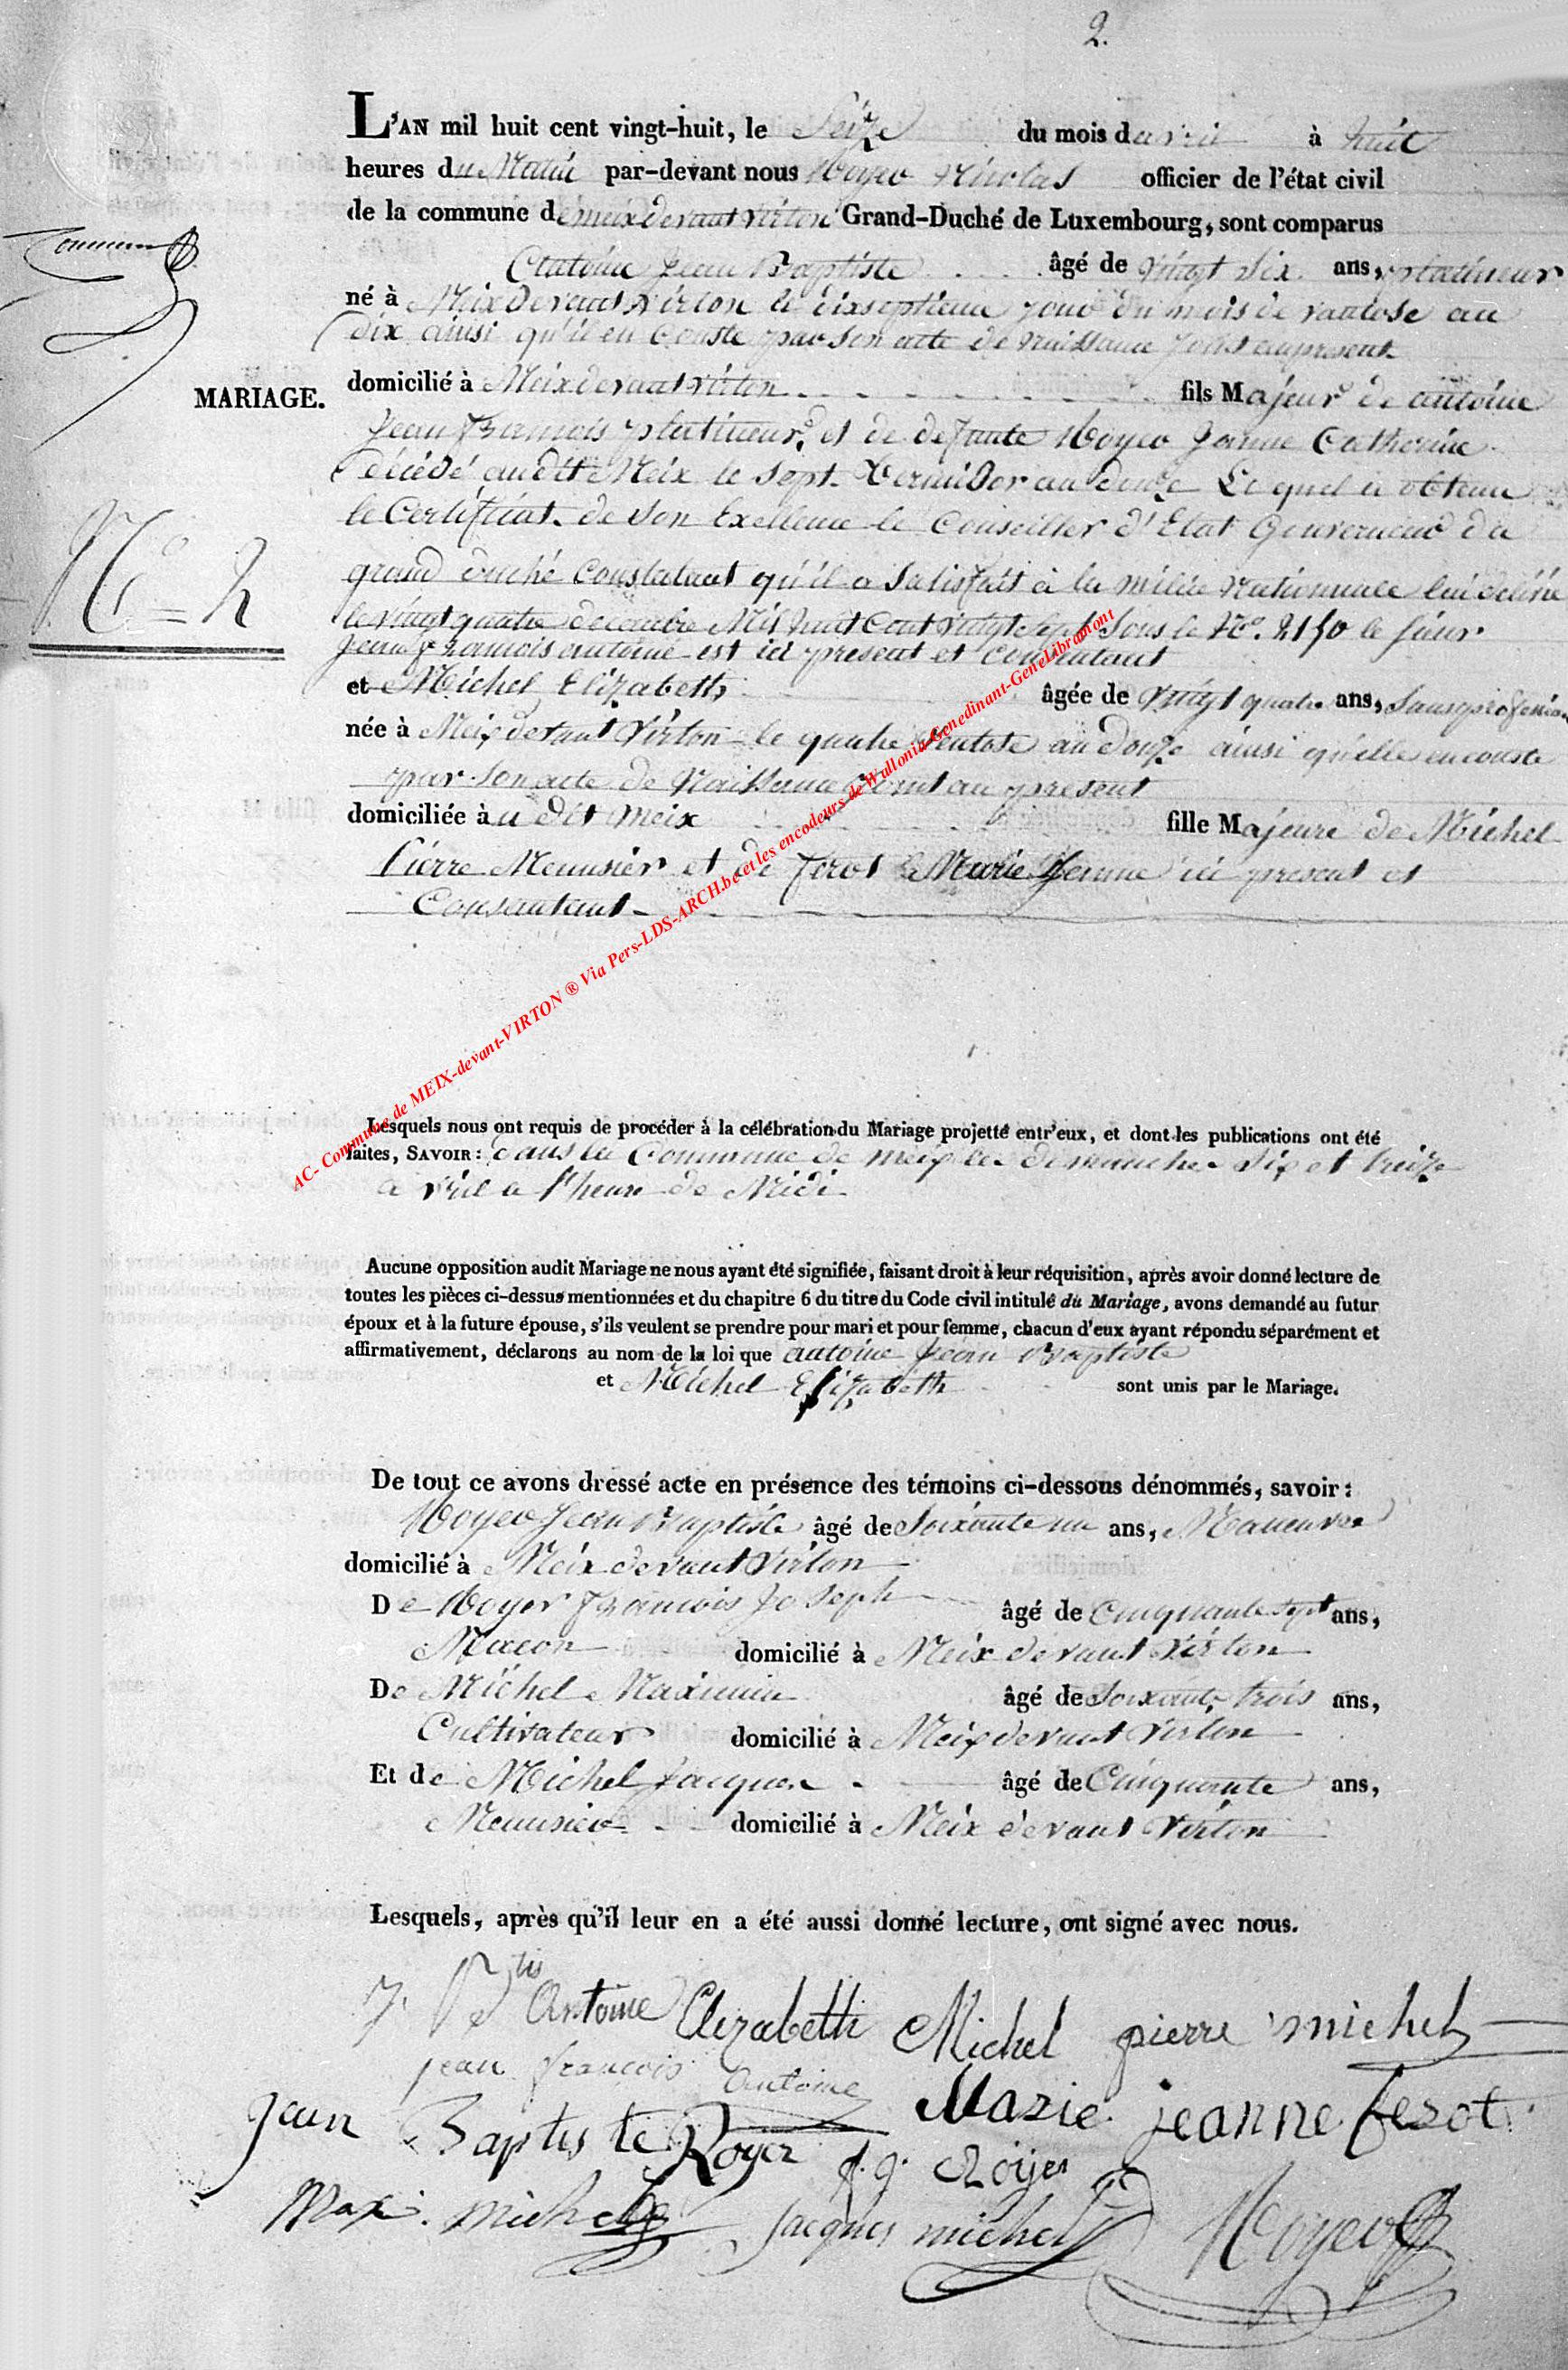 2.
L'AN mil huit cent vingt-huit, le Seize du mois d avril à huit
heures du Matin par-devant nous Royer Nicolas officier de l'état civil
de la commune de meix devant virton Grand-Duché de Luxembourg, sont comparus
antoine Jean Baptiste âgé de vingt Six ans, platineur
né à Meix Devant Virton le dixseptieme jour du mois de vantose an
dix ainsi qu'il en Conste par son acte de Naissance joint au present
MARIAGE.
domicilié à Meix devant virton fils Majeur de antoine
Jean François platineur et de defunte Royer Jeanne Catherine
décédé audit Meix le Sept Termidor an douze Lequel a obtenu
le Certificat de Son Exellence le Conseiller d'Etat Gouverneur du
N° 2
grand duché Constatant qu'il a Satisfait a la milice Nationnale lui délivré
le vingt quatre decembre Mil huit Cent vingt Sept Sous le N°. 2150 le Sieur
Jean François antoine est ici present et Consentant
et Michel Elizabeth âgée de vingt quatre ans, Sans profession
née à Meix devant Virton le quatre Ventose an Douze ainsi qu'elle en conste
par son acte de Naissance joint au present
domiciliée à u dit Meix fille Majeure de Michel
Pierre Menusier et de ferot Marie Jeanne ici present et
Consantant
AC- Commune de MEIX-devant-VIRTON ® Via Pers-LDS-ARCH.be et les encodeurs de Wallonia-Genedinant-GeneLibramont
Lesquels nous ont requis de procéder à la célébration du Mariage projetté entr'eux, et dont les publications ont été
faites, SAVOIR : dans la Commune de meix les dimanches Six et treize
avril a l'heure de Midi
Aucune opposition audit Mariage ne nous ayant été signifiée, faisant droit à leur réquisition, après avoir donné lecture de
toutes les pièces ci-dessus mentionnées et du chapitre 6 du titre du Code civil intitulé du Mariage, avons demandé au futur
époux et à la future épouse, s'ils veulent se prendre pour mari et pour femme, chacun d'eux ayant répondu séparément et
affirmativement, déclarons au nom de la loi que antoine Jean Baptiste
et Michel Elizabeth sont unis par le Mariage.
De tout ce avons dressé acte en présence des témoins ci-dessous dénommés, savoir :
Royer Jean Baptiste âgé de Soixante un ans, Maneuvre
domicilié à Meix devant Virton
De Royer François Joseph âgé de Cinquante sept ans,
Macon domicilié à Meix devant Virton
De Michel Maximin âgé de Soixante trois ans,
Cultivateur domicilié à Meix devant Virton
Et de Michel Jacques âgé de Cinquante ans,
Menusier domicilié à Meix devant Virton
Lesquels, après qu'il leur en a été aussi donné lecture, ont signé avec nous.
J. Btis Antoine Elizabeth Michel pierre michel
jean francois Antoine Marie jeanne ferot
Jean Baptiste Royer f. j. Royer
Max. michel Jacques michel Royer